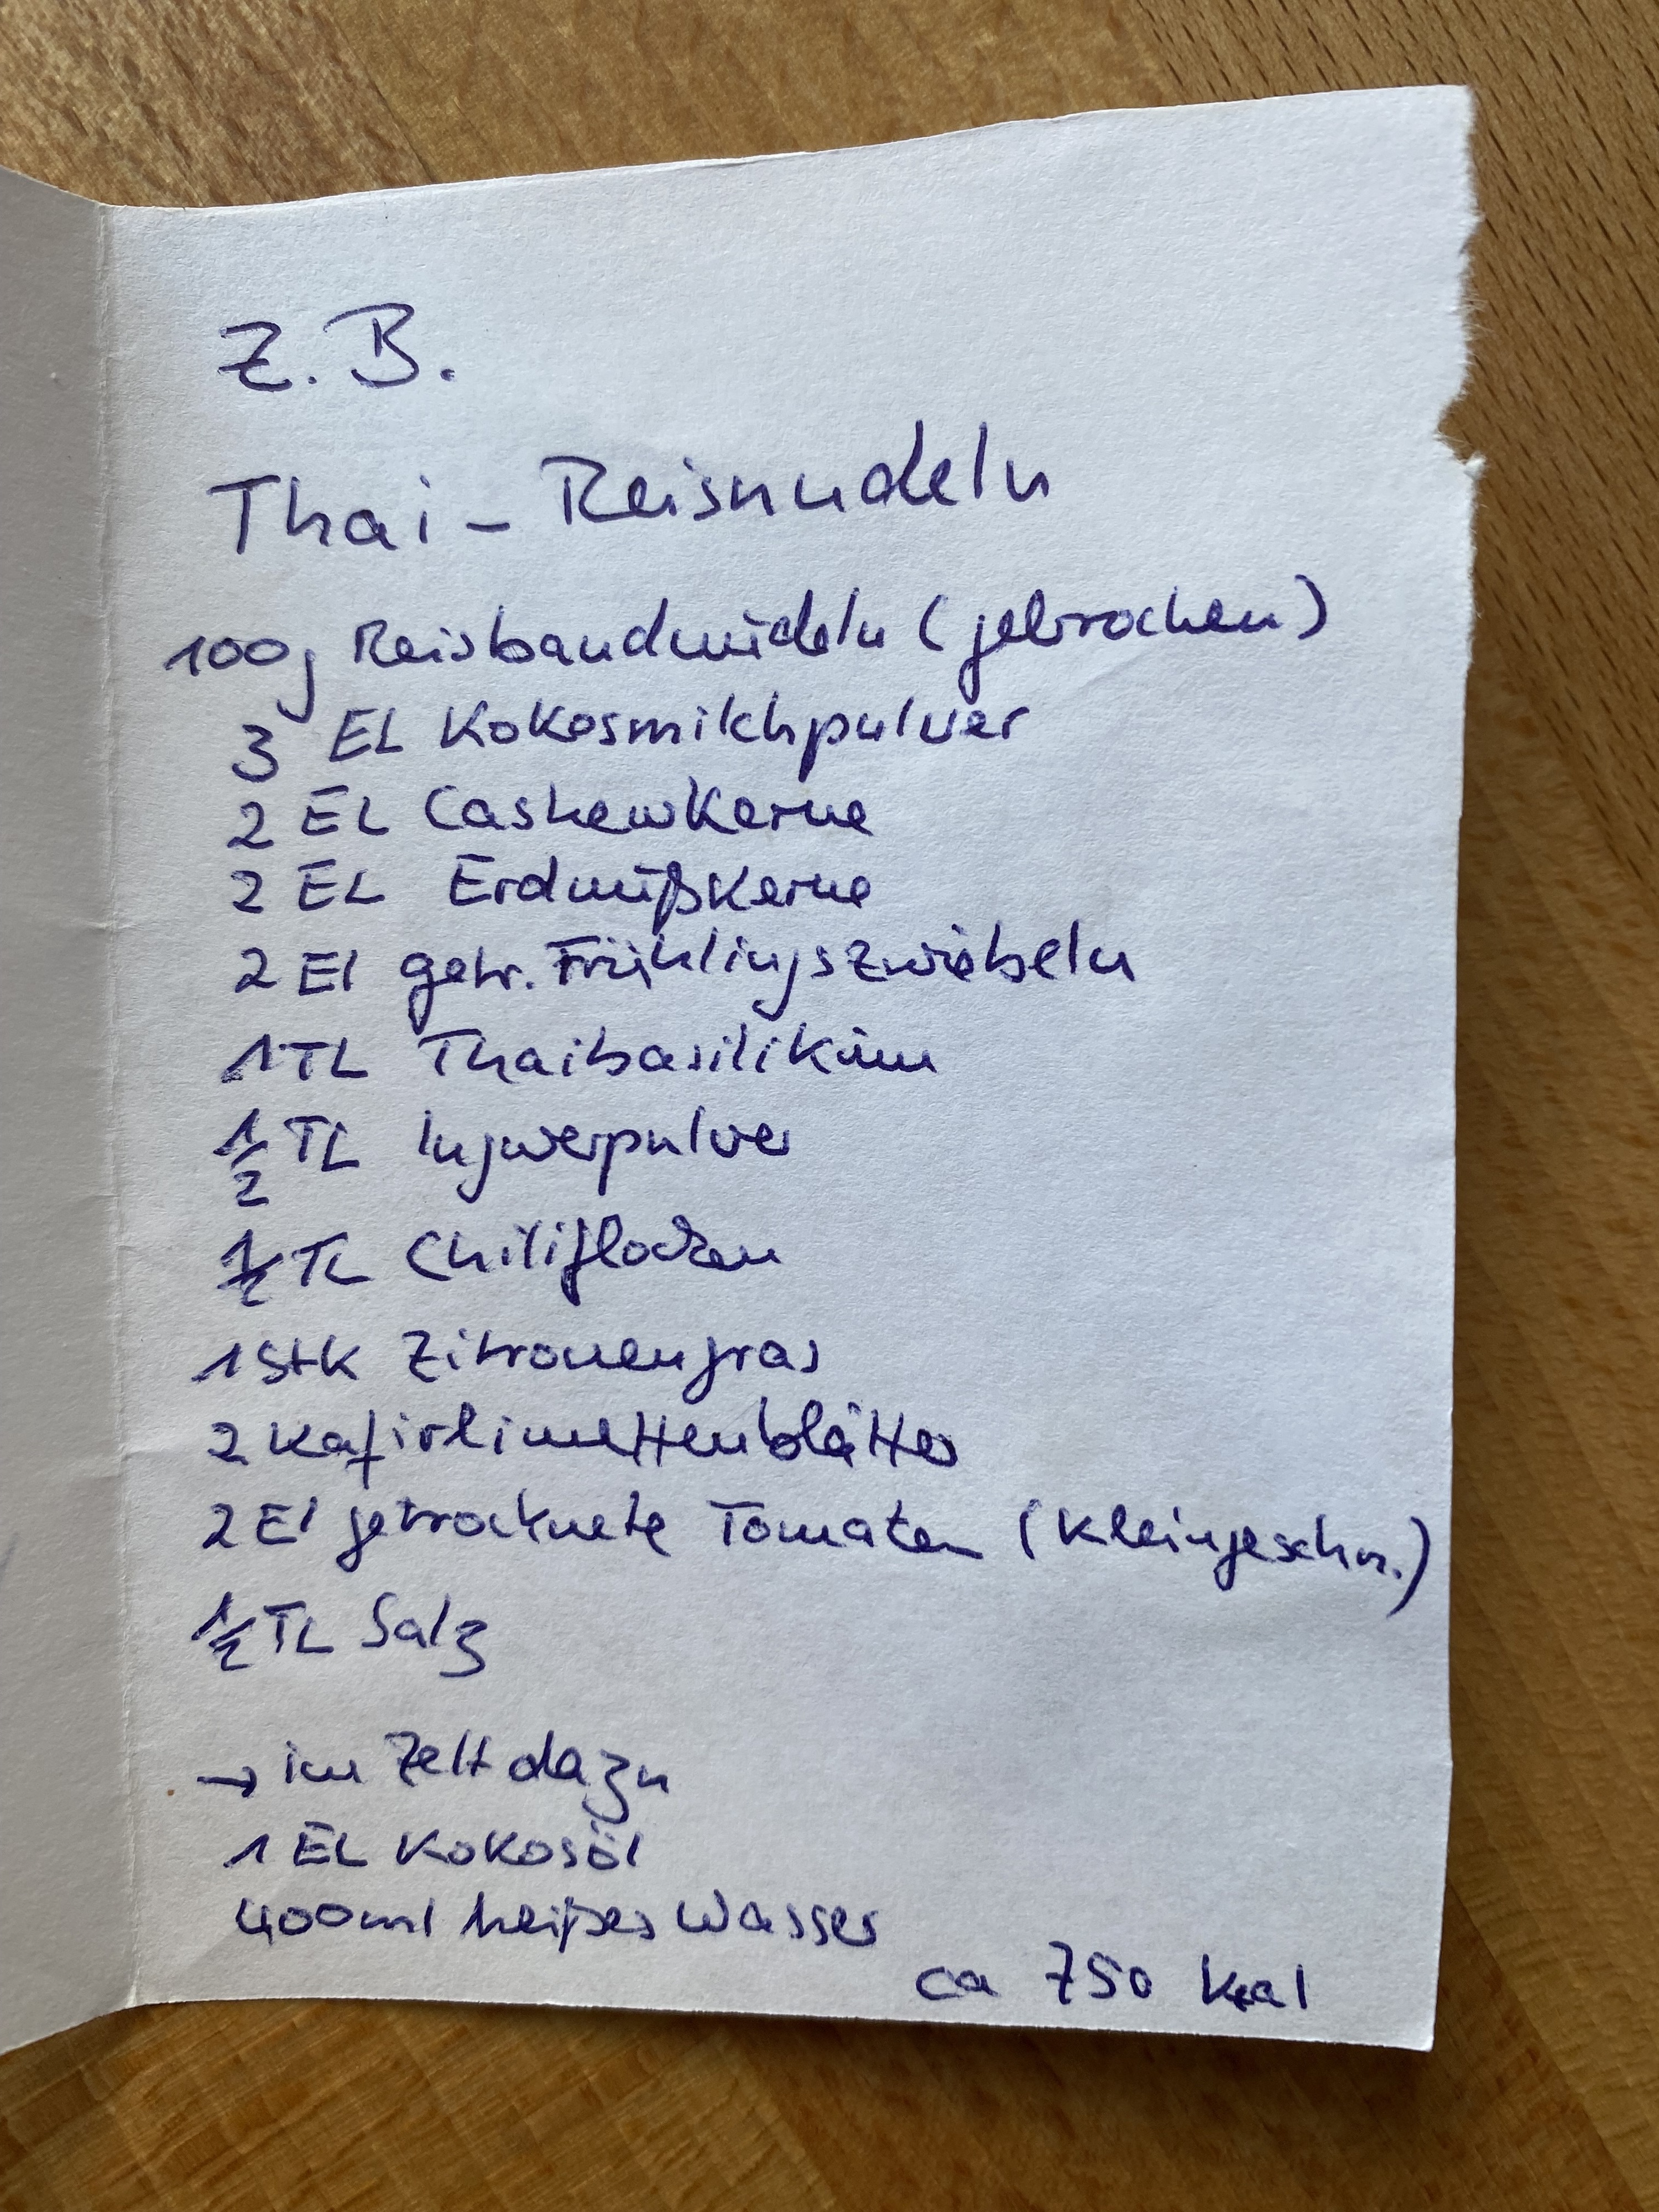 Z.B.
Thai-Reisnudeln
100g Reisbandnudeln (gebrochen)
3 EL Kokosmilchpulver
2 EL Cashewkerne
2 EL Erdnußkerne
2 El getr. Frühlingszwiebeln
1 TL Thaibasilikum
1/2 TL Ingwerpulver
1/2 TL Chiliflocken
1 Stk Zitronengras
2 Kafirlimettenblätter
2 El getrocknete Tomaten (kleingeschn.)
1/2 TL Salz
→ im Zelt dazu
1 EL Kokosöl
400ml heißes Wasser
ca 750 kcal